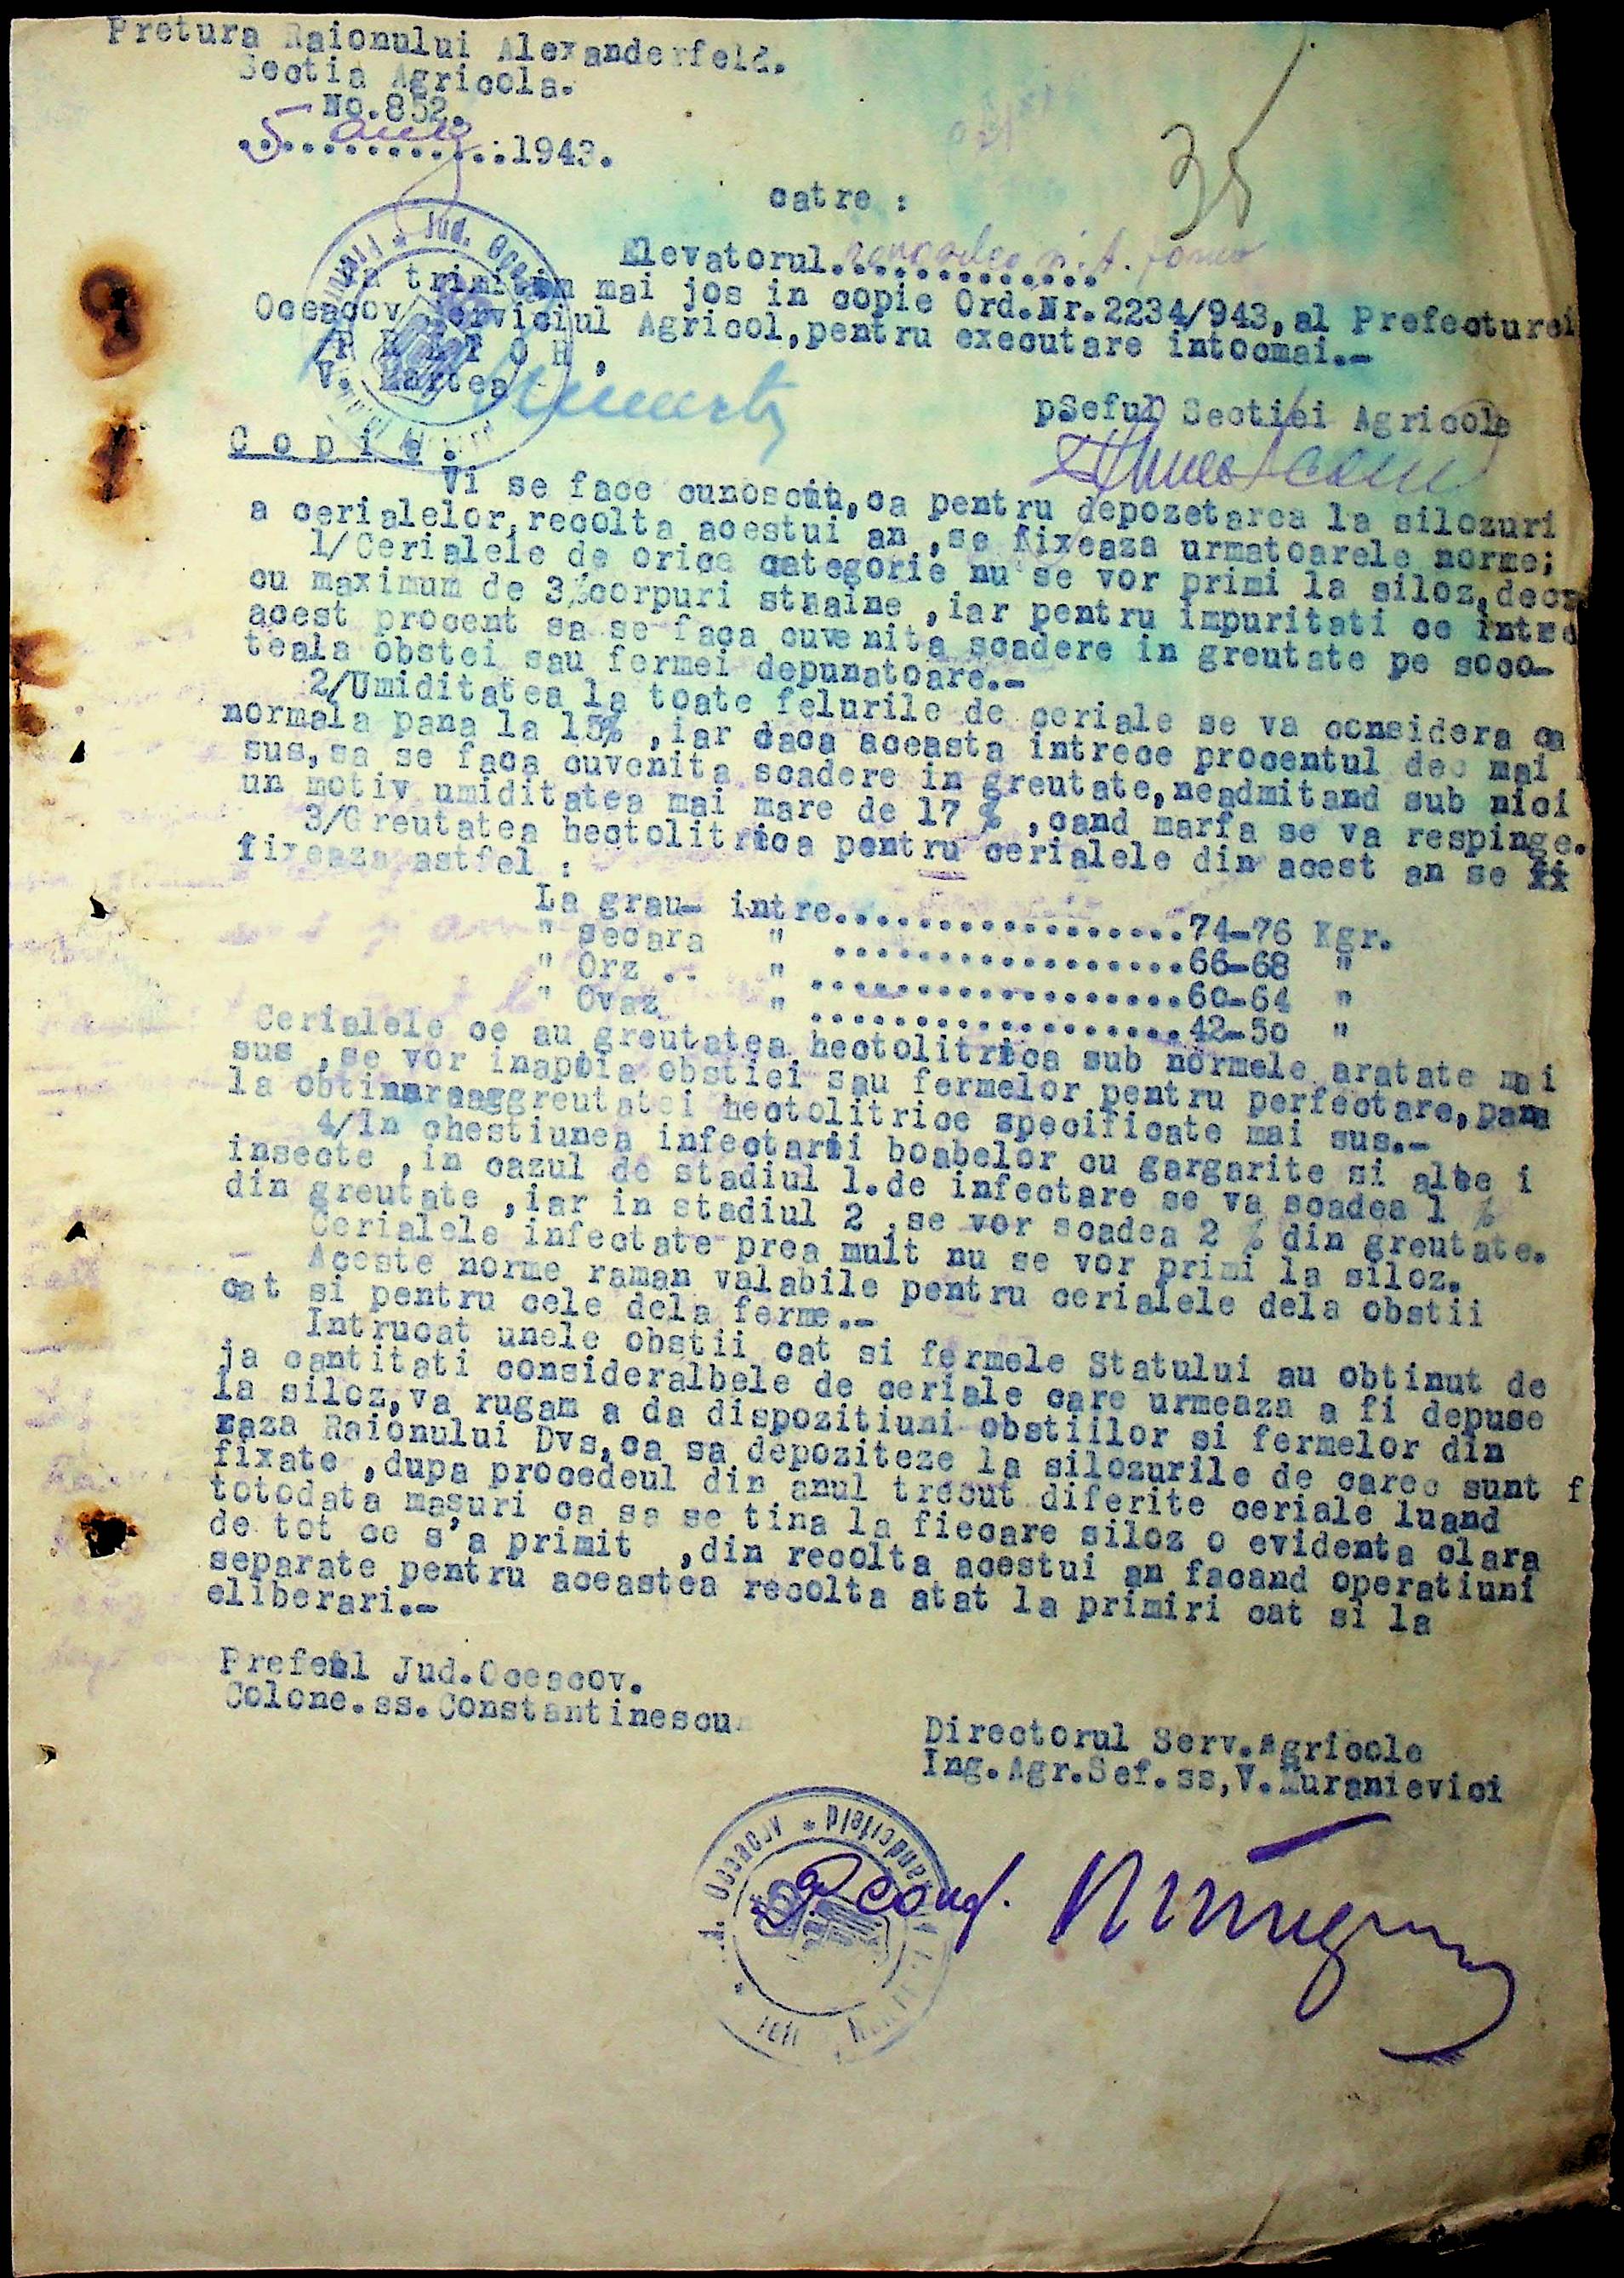 Pretura Raionului Alexanderfeld.
Sectia Agricola.
No.852.
5 aug 1943.
35
catre :
Elevatorul
Va trimitem mai jos in copie Ord.Nr.2234/943,al Prefecturei
Oceacov Serviciul Agricol,pentru executare intocmai.-
PRETOR,
V. Martea
pSeful Sectiei Agricole
Copie.
Vi se face cunoscut,ca pentru depozetarea la silozuri
a cerialelor,recolta acestui an ,se fixeaza urmatoarele norme;
1/Cerialele de orice categorie nu se vor primi la siloz,decat
cu maximum de 3%corpuri straine ,iar pentru impuritati ce intrec
acest procent sa se faca cuvenita scadere in greutate pe soco-
teala obstei sau fermei depunatoare.-
2/Umiditatea la toate felurile de ceriale se va considera ca
normala pana la 15% ,iar daca aceasta intrece procentul dec mai
sus,sa se faca cuvenita scadere in greutate,neadmitand sub nici
un motiv umiditatea mai mare de 17 % ,cand marfa se va respinge.
3/Greutatea hectolitrica pentru cerialele din acest an se
fixeaza astfel :
La grau- intre..................74-76 Kgr.
" secara " ..................66-68 "
" Orz .. " ...................60-64 "
" Ovaz " ...................42-50 "
Cerialele ce au greutatea hectolitrica sub normele aratate mai
sus ,se vor inapoia obstiei sau fermelor pentru perfectare,pana
la obtinerea greutatei hectolitrice specificate mai sus.-
4/In chestiunea infectarii boabelor cu gargarite si alte i
insecte ,in cazul de stadiul 1.de infectare se va scadea 1 %
din greutate ,iar in stadiul 2 ,se vor scadea 2 % din greutate.
Cerialele infectate prea mult nu se vor primi la siloz.
Aceste norme raman valabile pentru cerialele dela obstii
cat si pentru cele dela ferme.-
Intrucat unele obstii cat si fermele Statului au obtinut de
ja cantitati consideralbele de ceriale care urmeaza a fi depuse
la siloz,va rugam a da dispozitiuni obstiilor si fermelor din
raza Raionului Dvs,ca sa depoziteze la silozurile de carec sunt f
fixate ,dupa procedeul din anul trecut diferite ceriale luand
totodata masuri ca sa se tina la fiecare siloz o evidenta clara
de tot ce s'a primit ,din recolta acestui an facand operatiuni
separate pentru aceastea recolta atat la primiri cat si la
eliberari.-
Prefetul Jud.Oceacov.
Colone.ss.Constantinescu
Directorul Serv.Agricole
Ing.Agr.Sef.ss,V.Muranievici